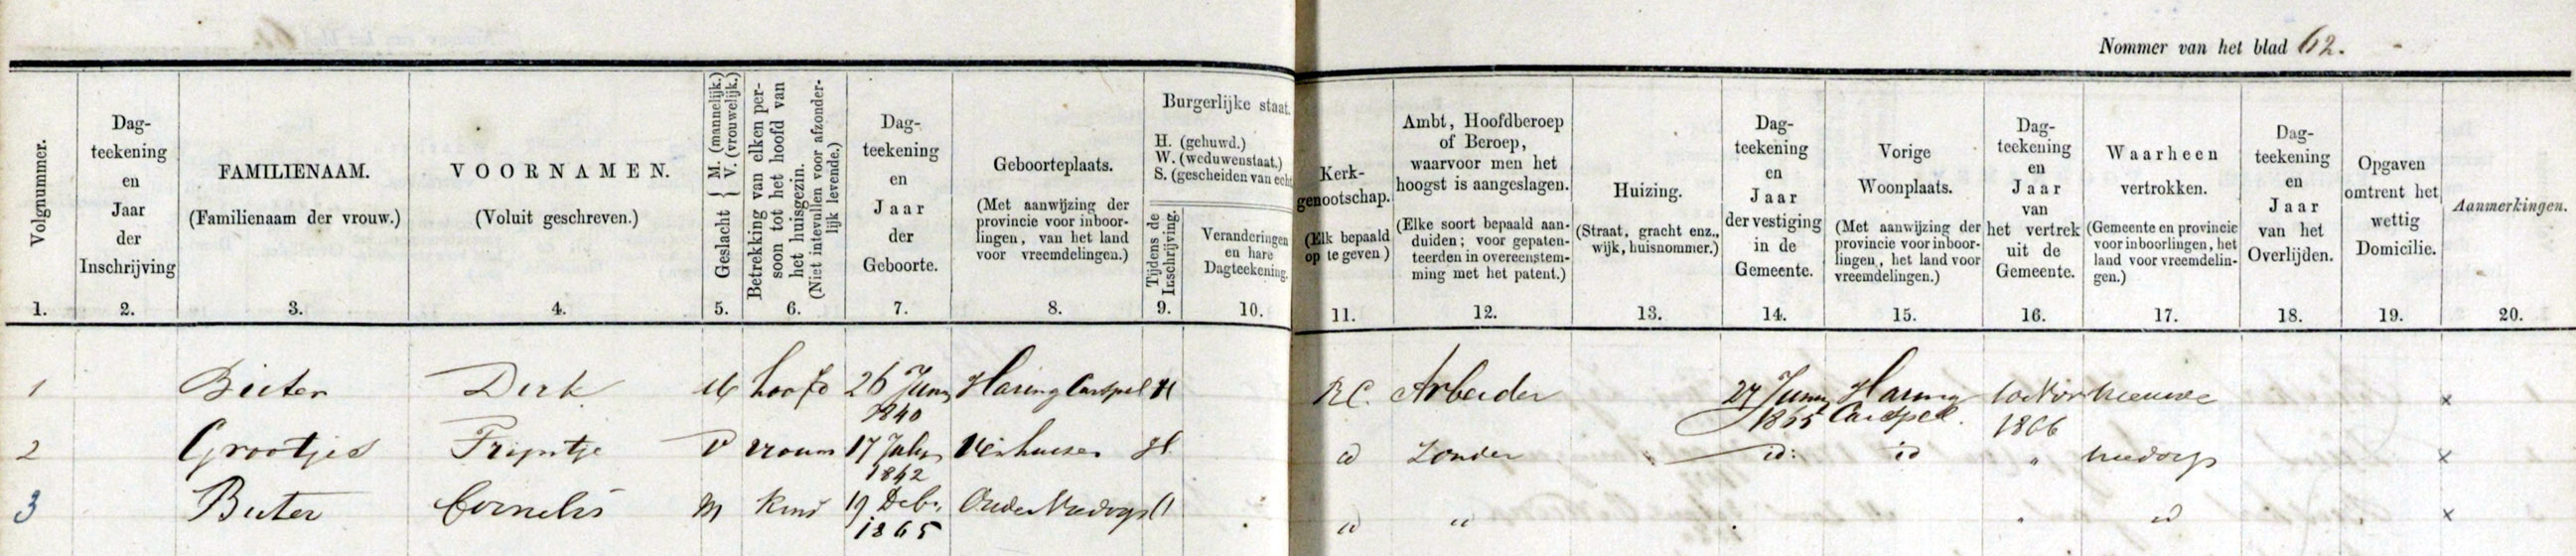 Nommer van het blad 62.
Volgnummer.
1.
Dag-
teekening
en
Jaar
der
Inschrijving
2.
FAMILIENAAM.
(Familienaam der vrouw.)
3.
VOORNAMEN.
(Voluit geschreven.)
4.
Geslacht { M. (mannelijk.)
V. (vrouwelijk.)
5.
Betrekking van elken per-
soon tot het hoofd van
het huisgezin.
(Niet intevullen voor afzonder-
lijk levende.)
6.
Dag-
teekening
en
Jaar
der
Geboorte.
7.
Geboorteplaats.
(Met aanwijzing der
provincie voor inboor-
lingen, van het land
voor vreemdelingen.)
8.
Burgerlijke staat.
H. (gehuwd.)
W. (weduwenstaat.)
S. (gescheiden van echt
Tijdens de
Inschrijving.
9.
Veranderingen
en hare
Dagteekening.
10.
Kerk-
genootschap.
(Elk bepaald
op te geven.)
11.
Ambt, Hoofdberoep
of Beroep,
waarvoor men het
hoogst is aangeslagen.
(Elke soort bepaald aan-
duiden; voor gepaten-
teerden in overeenstem-
ming met het patent.)
12.
Huizing.
(Straat, gracht enz.,
wijk, huisnommer.)
13.
Dag-
teekening
en
Jaar
der vestiging
in de
Gemeente.
14.
Vorige
Woonplaats.
(Met aanwijzing der
provincie voor inboor-
lingen, het land voor
vreemdelingen.)
15.
Dag-
teekening
en
Jaar
van
het vertrek
uit de
Gemeente.
16.
Waarheen
vertrokken.
(Gemeente en provincie
voor inboorlingen, het
land voor vreemdelin-
gen.)
17.
Dag-
teekening
en
Jaar
van het
Overlijden.
18.
Opgaven
omtrent het
wettig
Domicilie.
19.
Aanmerkingen.
20.
1 Dirk M hoofd 26 Juny Haring Carspel H R.C. Arbeider 27 Juny Haring Nieuwe x
1840 1865 Carspel. 1866
2 Grootjes Trijntje V vrouw 17 July Veenhuizen H id Zonder id: id " Niedorp x
1842
3 Cornelis M kind 19 Deb. Oude Niedorp id " " id x
1865